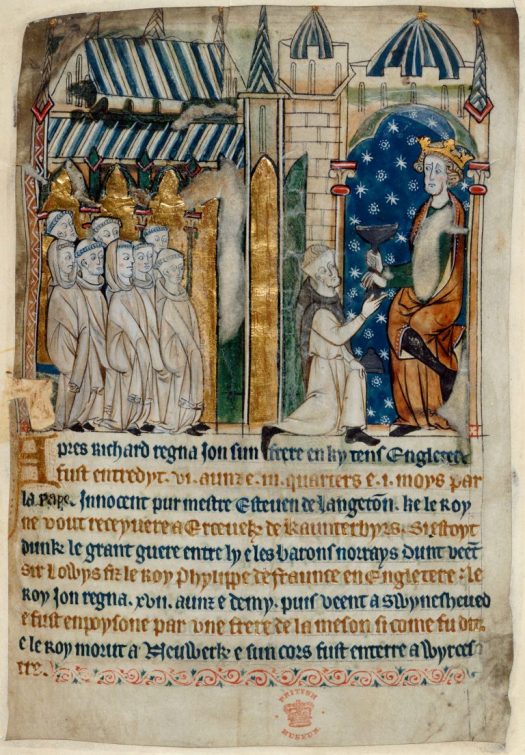 Apres Richard regna Jon sun frere en ky tens Engletere
fust entredyt. vi. aunz e. iii. quarters e. i. moys par
la Pape. Innocent pur mestre Esteuen de Langeton. ke le Roy
ne vout receyuere a Erceuesk de Kaunterbyrs. Si estoyt
dunk le grant guere entre ly e les barons norrays dunt veent
Sir Lowys fiz le Roy Phylippe de fraunce en Engletere. le
Roy Jon regna. xvii. aunz e demy. puis veent a Swynesheued
e fust enpoysone par vne frere de la meson si come fu dit.
e le Roy morut a Neuwerk e sun cors fust enterre a Wyrces
tre.
BRITISH
MUSEUM